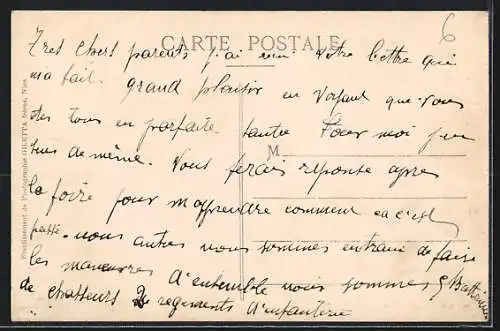 6
CARTE POSTALE
Tres chers parents j'ai reçu votre lettre qui
m'a fait grand plaisir en voyant que vous
etes tous en parfaite santée Pour moi j'en
suis de même. Vous ferais reponse apres
M
la foire pour m'apprendre comment ca c'est
passé. nous autres nous sommes entrain de faire
les maneuvres d'ensemble nous sommes 6 Bataillons
de chasseurs 2 regiments d'infanterie
Etablissement de Photographie GILETTA frères, Nice